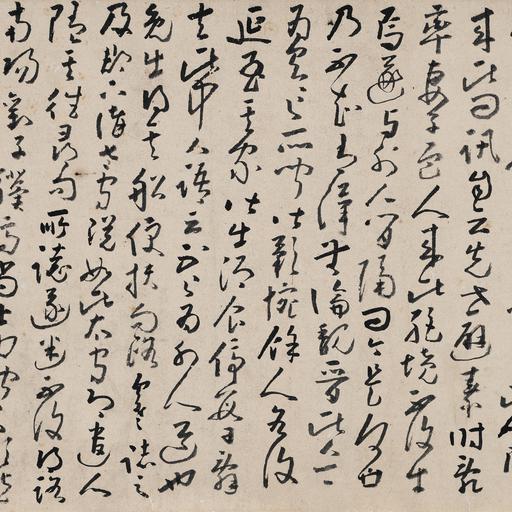 来此問訊自云先世避秦時亂
率妻子邑人来此絕境不復出
焉遂與外人間隔問今是何世
乃不知有漢無論魏晉此人一一
為具言所聞皆歎惋餘人各復
延至其家皆出酒食停數日辭
去此中人語云不足為外人道也
既出得其船便扶向路處處誌之
及郡下詣太守說如此太守即遣人
隨其往尋向所誌遂迷不復得路
南陽劉子驥高尚士也聞之欣然